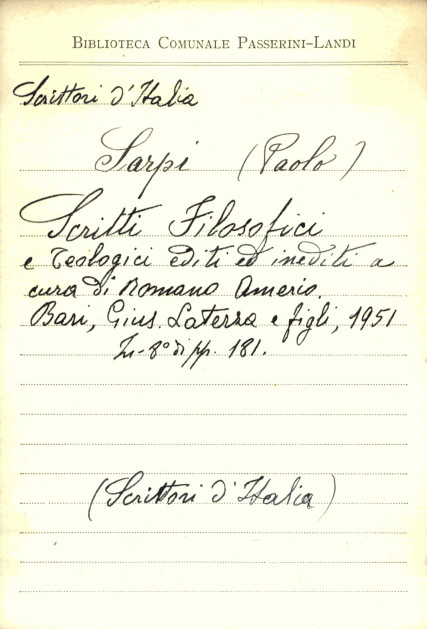 Biblioteca Comunale Passerini-Landi
Scrittori d'Italia
Sarpi (Paolo)
Scritti Filosofici
e Teologici editi ed inediti a
cura di Romano Amerio.
Bari, Gius. Laterza e figli, 1951
In-8° di pp. 181.
(Scrittori d'Italia)